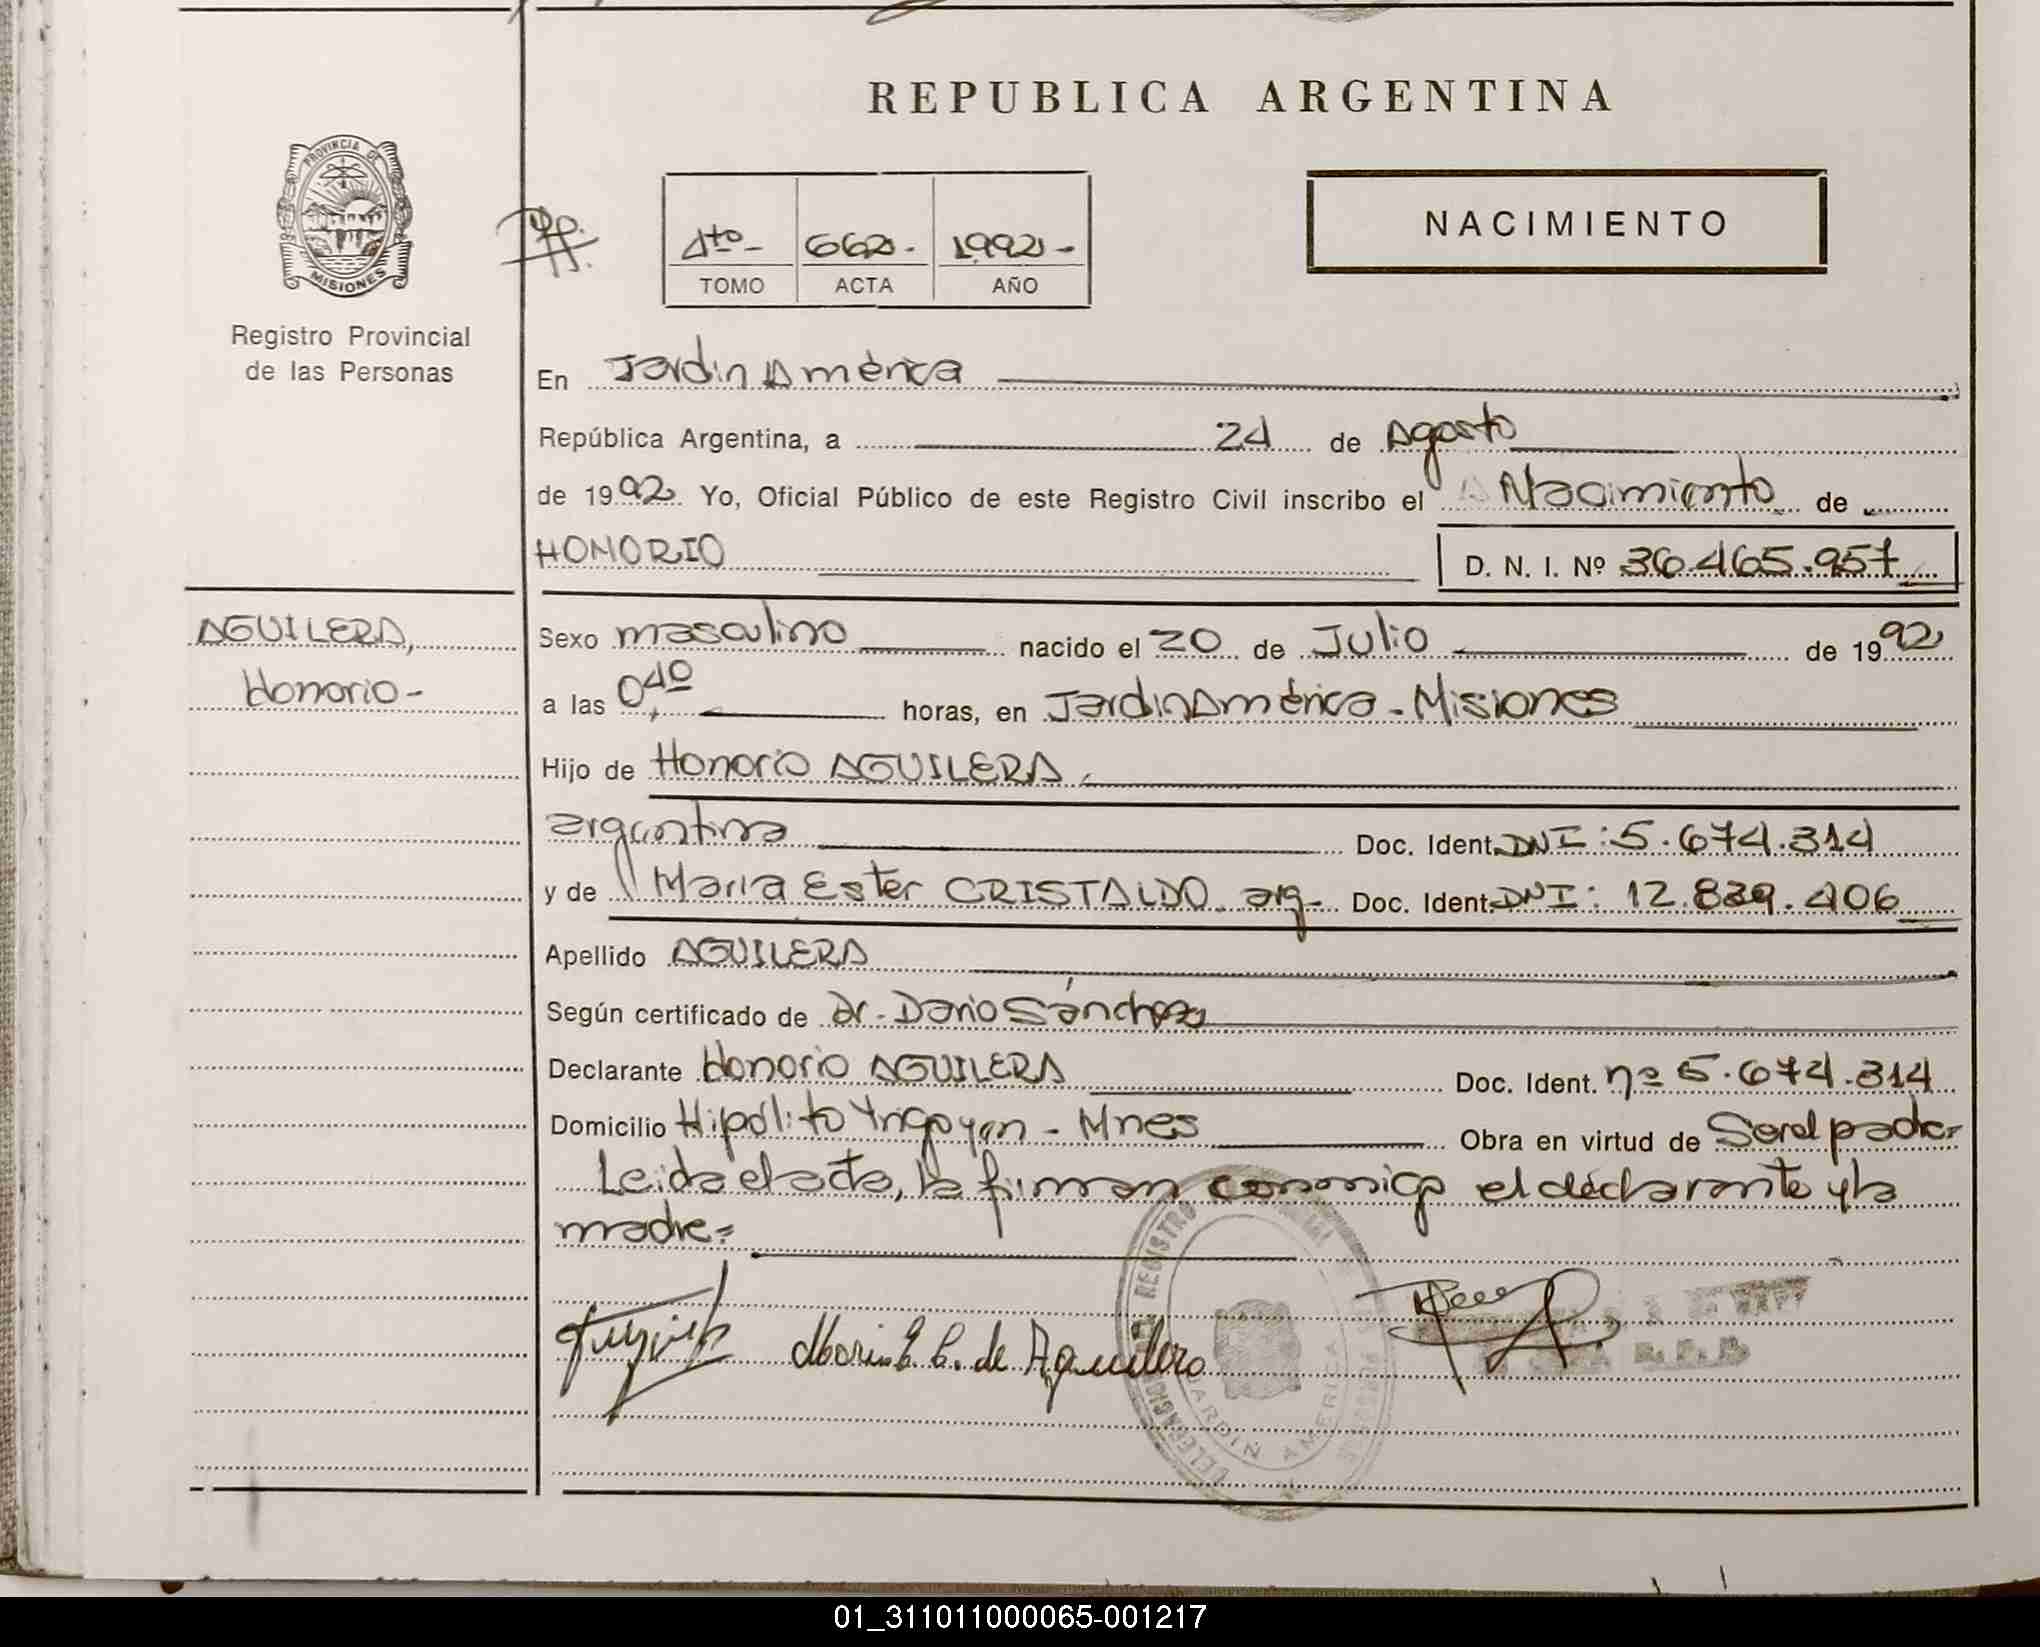 REPUBLICA ARGENTINA
PROVINCIA DE
MISIONES
Registro Provincial
de las Personas
4to- 662- 1992-
TOMO ACTA AÑO
NACIMIENTO
En Jardin América
República Argentina, a 24 de Agosto
de 1992. Yo, Oficial Público de este Registro Civil inscribo el Nacimiento de
HONORIO D. N. I. Nº 36.465.957
AGUILERA,
Honorio-
Sexo masculino nacido el 20 de Julio de 1992
a las 0,40 horas, en Jardin América - Misiones
Hijo de Honorio AGUILERA,
argentina Doc. Ident. DNI: 5.674.314
y de María Ester CRISTALDO arg- Doc. Ident. DNI: 12.839.406
Apellido AGUILERA
Según certificado de Dr. Dario Sánchez
Declarante Honorio AGUILERA Doc. Ident. nº 5.674.314
Domicilio Hipólito Yrigoyen - Mnes Obra en virtud de Ser el padre
Leida el acta, la firman conmigo el declarante y la
madre=
Maria E. C. de Aguilera
DELEGACION REGISTRO
JARDIN AMERICA
01_311011000065-001217